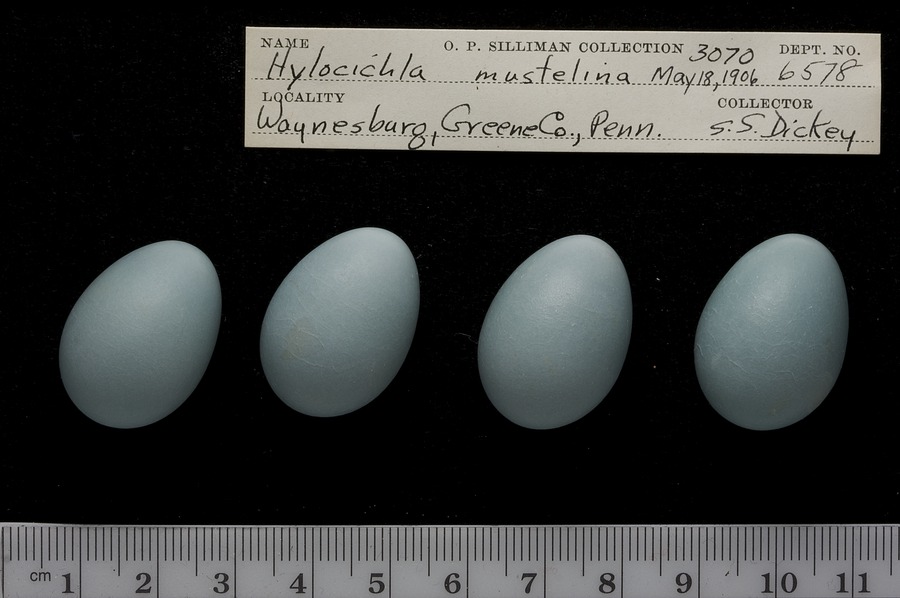 NAME O. P. SILLIMAN COLLECTION 3070 DEPT. NO.
Hylocichla mustelina May 18, 1906 6578
LOCALITY COLLECTOR
Waynesburg, Greene Co., Penn. S. S. Dickey
cm 1 2 3 4 5 6 7 8 9 10 11